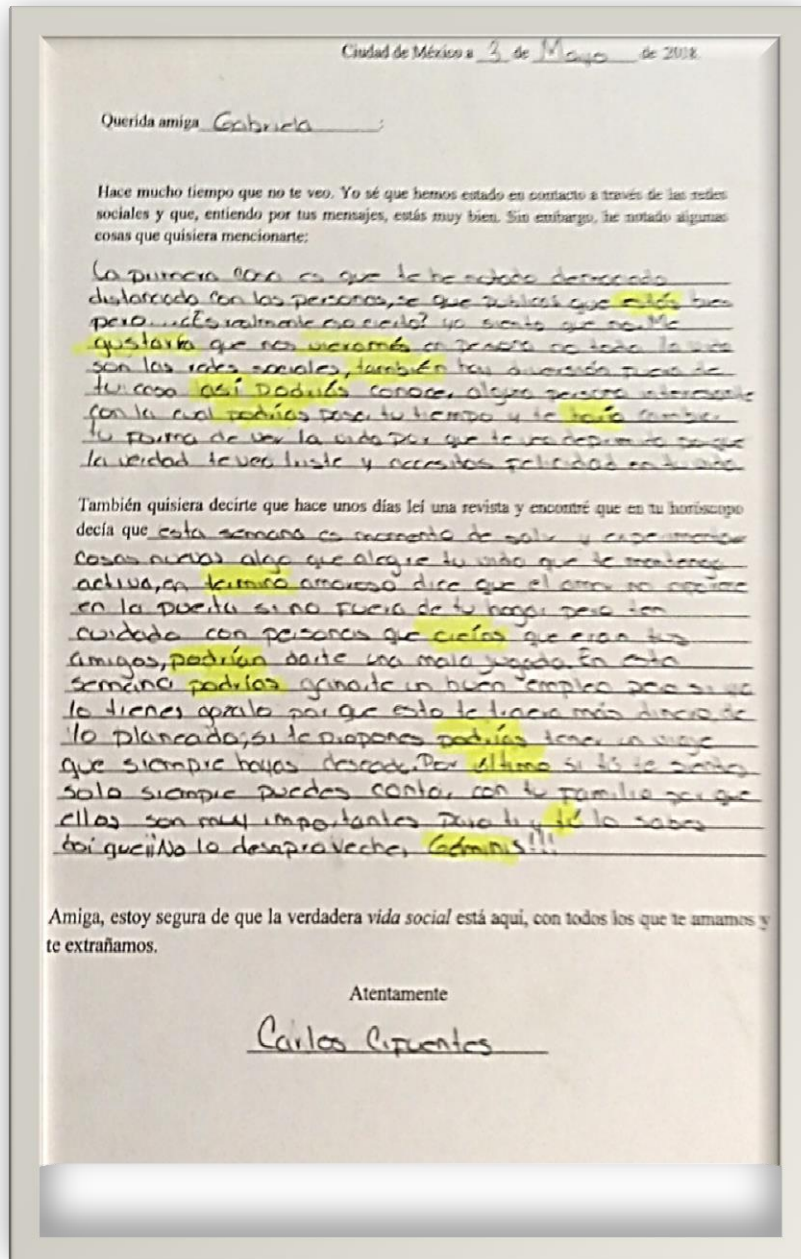 Ciudad de México a 3 de Mayo de 2018
Querida amiga Gabriela :
Hace mucho tiempo que no te veo. Yo sé que hemos estado en contacto a través de las redes
sociales y que, entiendo por tus mensajes, estás muy bien. Sin embargo, he notado algunas
cosas que quisiera mencionarte:
La primera cosa es que te he notado demasiado
distanciado con las personas, se que publicas que estás bien
pero... ¿Es realmente eso cierto? yo siento que no. Me
gustaría que nos vieramos en persona no toda la vida
son las redes sociales, también hay diversión fuera de
tu casa así podrías conocer alguna persona interesante
con la cual podrías pasar tu tiempo y te haría cambiar
tu forma de ver la vida por que te veo deprimida porque
la verdad te veo triste y necesitas felicidad en tu vida
También quisiera decirte que hace unos días leí una revista y encontré que en tu horóscopo
decía que esta semana es momento de salir y experimentar
cosas nuevas algo que alegre tu vida que te mantenga
activa, en termino amoroso dice que el amor no
en la puerta si no fuera de tu hogar pero ten
cuidado con personas que creías que eran tus
amigos, podrían darte una mala jugada. En esta
semana podrías ganarte un buen empleo pero si ya
lo tienes gozalo por que esto te traera más dinero de
lo planeado; si te propones podrías tener un viaje
que siempre hayas deseado. Por último si tú te sientes
solo siempre puedes contar con tu familia por que
ellos son muy importantes para ti y tú lo sabes
así que ¡¡No lo desapraveche, Géminis!!!
Amiga, estoy segura de que la verdadera vida social está aquí, con todos los que te amamos y
te extrañamos.
Atentamente
Carlos Cifuentes